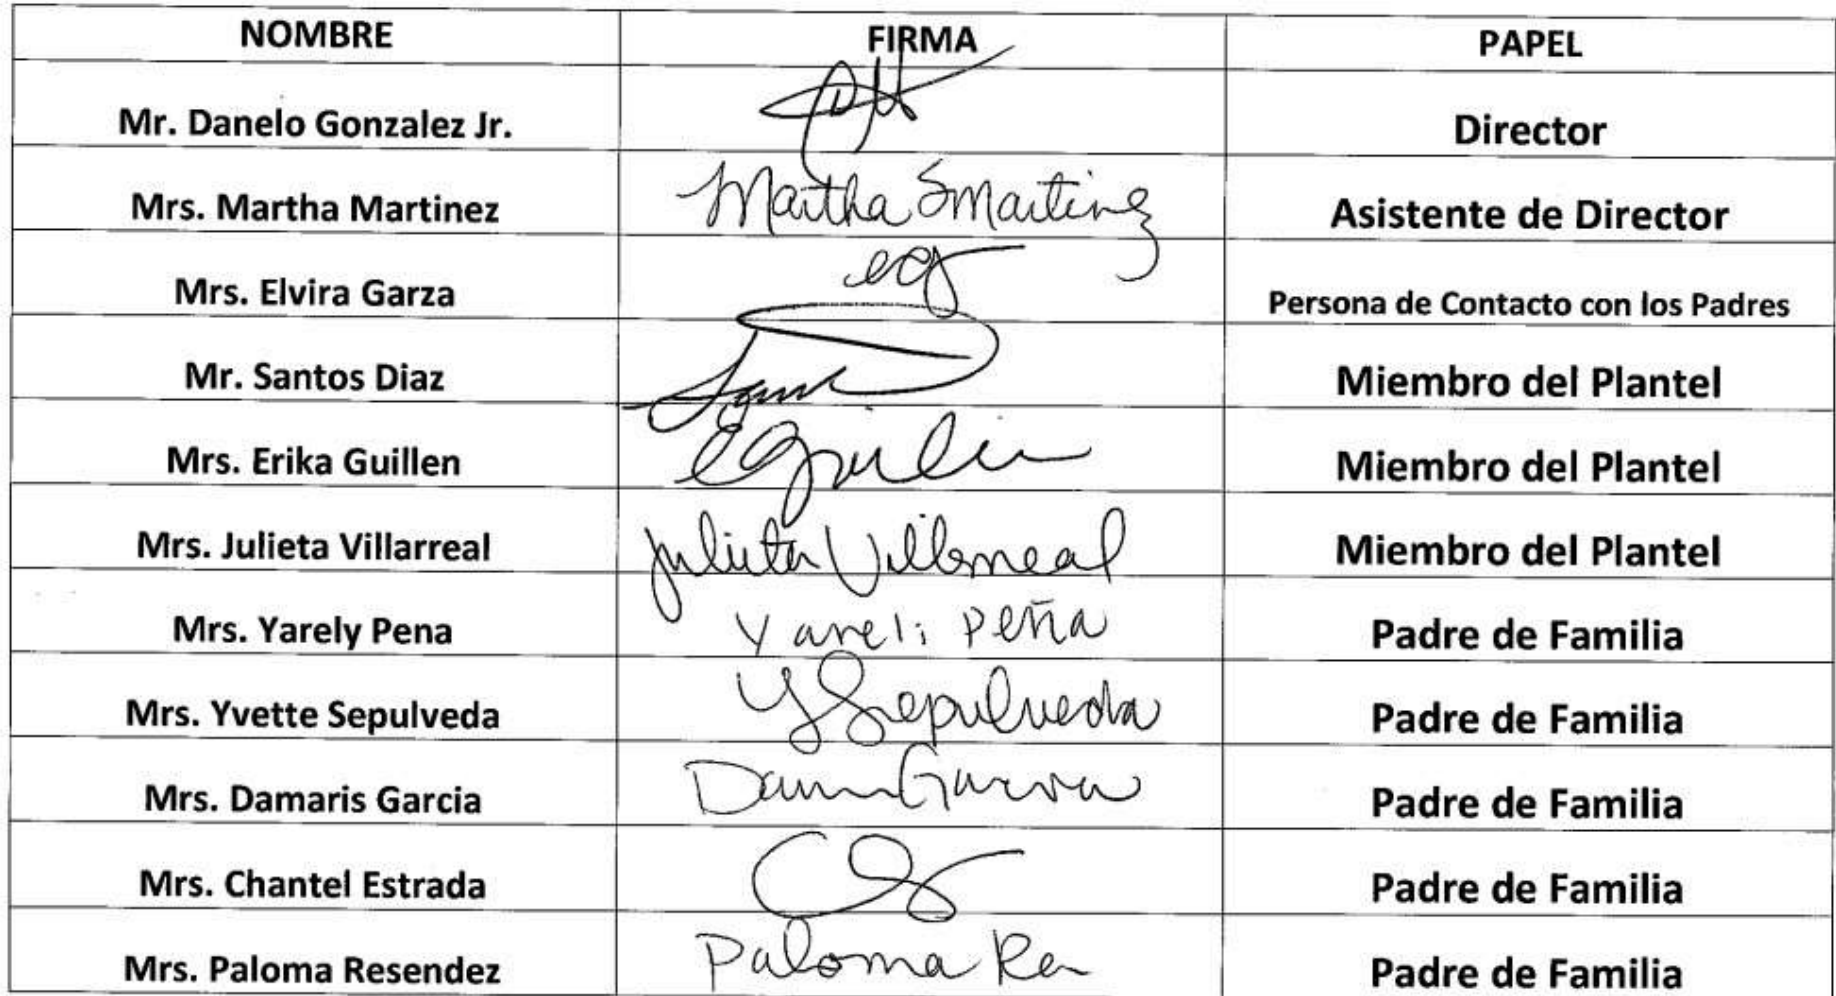 NOMBRE FIRMA PAPEL
Mr. Danelo Gonzalez Jr. Director
Mrs. Martha Martinez Martha S Martinez Asistente de Director
Mrs. Elvira Garza eg Persona de Contacto con los Padres
Mr. Santos Diaz Miembro del Plantel
Mrs. Erika Guillen Miembro del Plantel
Mrs. Julieta Villarreal Julieta Villarreal Miembro del Plantel
Mrs. Yarely Pena Yareli Peña Padre de Familia
Mrs. Yvette Sepulveda Y Sepulveda Padre de Familia
Mrs. Damaris Garcia Padre de Familia
Mrs. Chantel Estrada Padre de Familia
Mrs. Paloma Resendez Paloma Padre de Familia